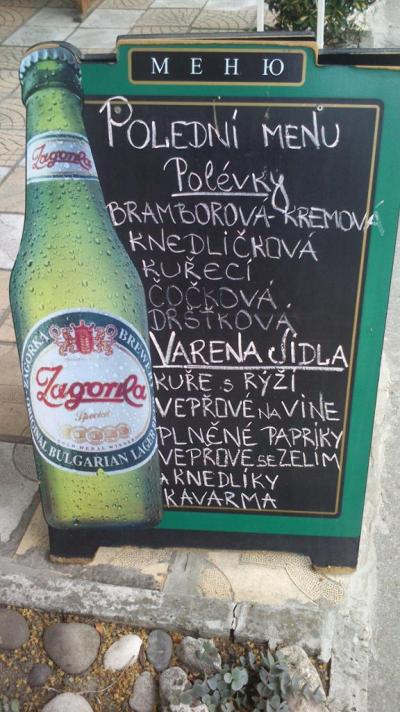 МЕНЮ
POLEDNÍ MENU
Polévky
BRAMBOROVÁ-KREMOVÁ
KNEDLIČKOVÁ
KUŘECÍ
ČOČKOVÁ
DRŠTKOVÁ
VARENA JÍDLA
KUŘE S RÝŽÍ
VEPŘOVÉ NA VÍNE
PLNĚNÉ PAPRIKY
VEPŘOVE SE ZELIM
A KNEDLÍKY
KAVARMA
Zagorka
ZAGORKA BREWERY
Zagorka
Special
GOLD MEDAL WINNER
ORIGINAL BULGARIAN LAGER